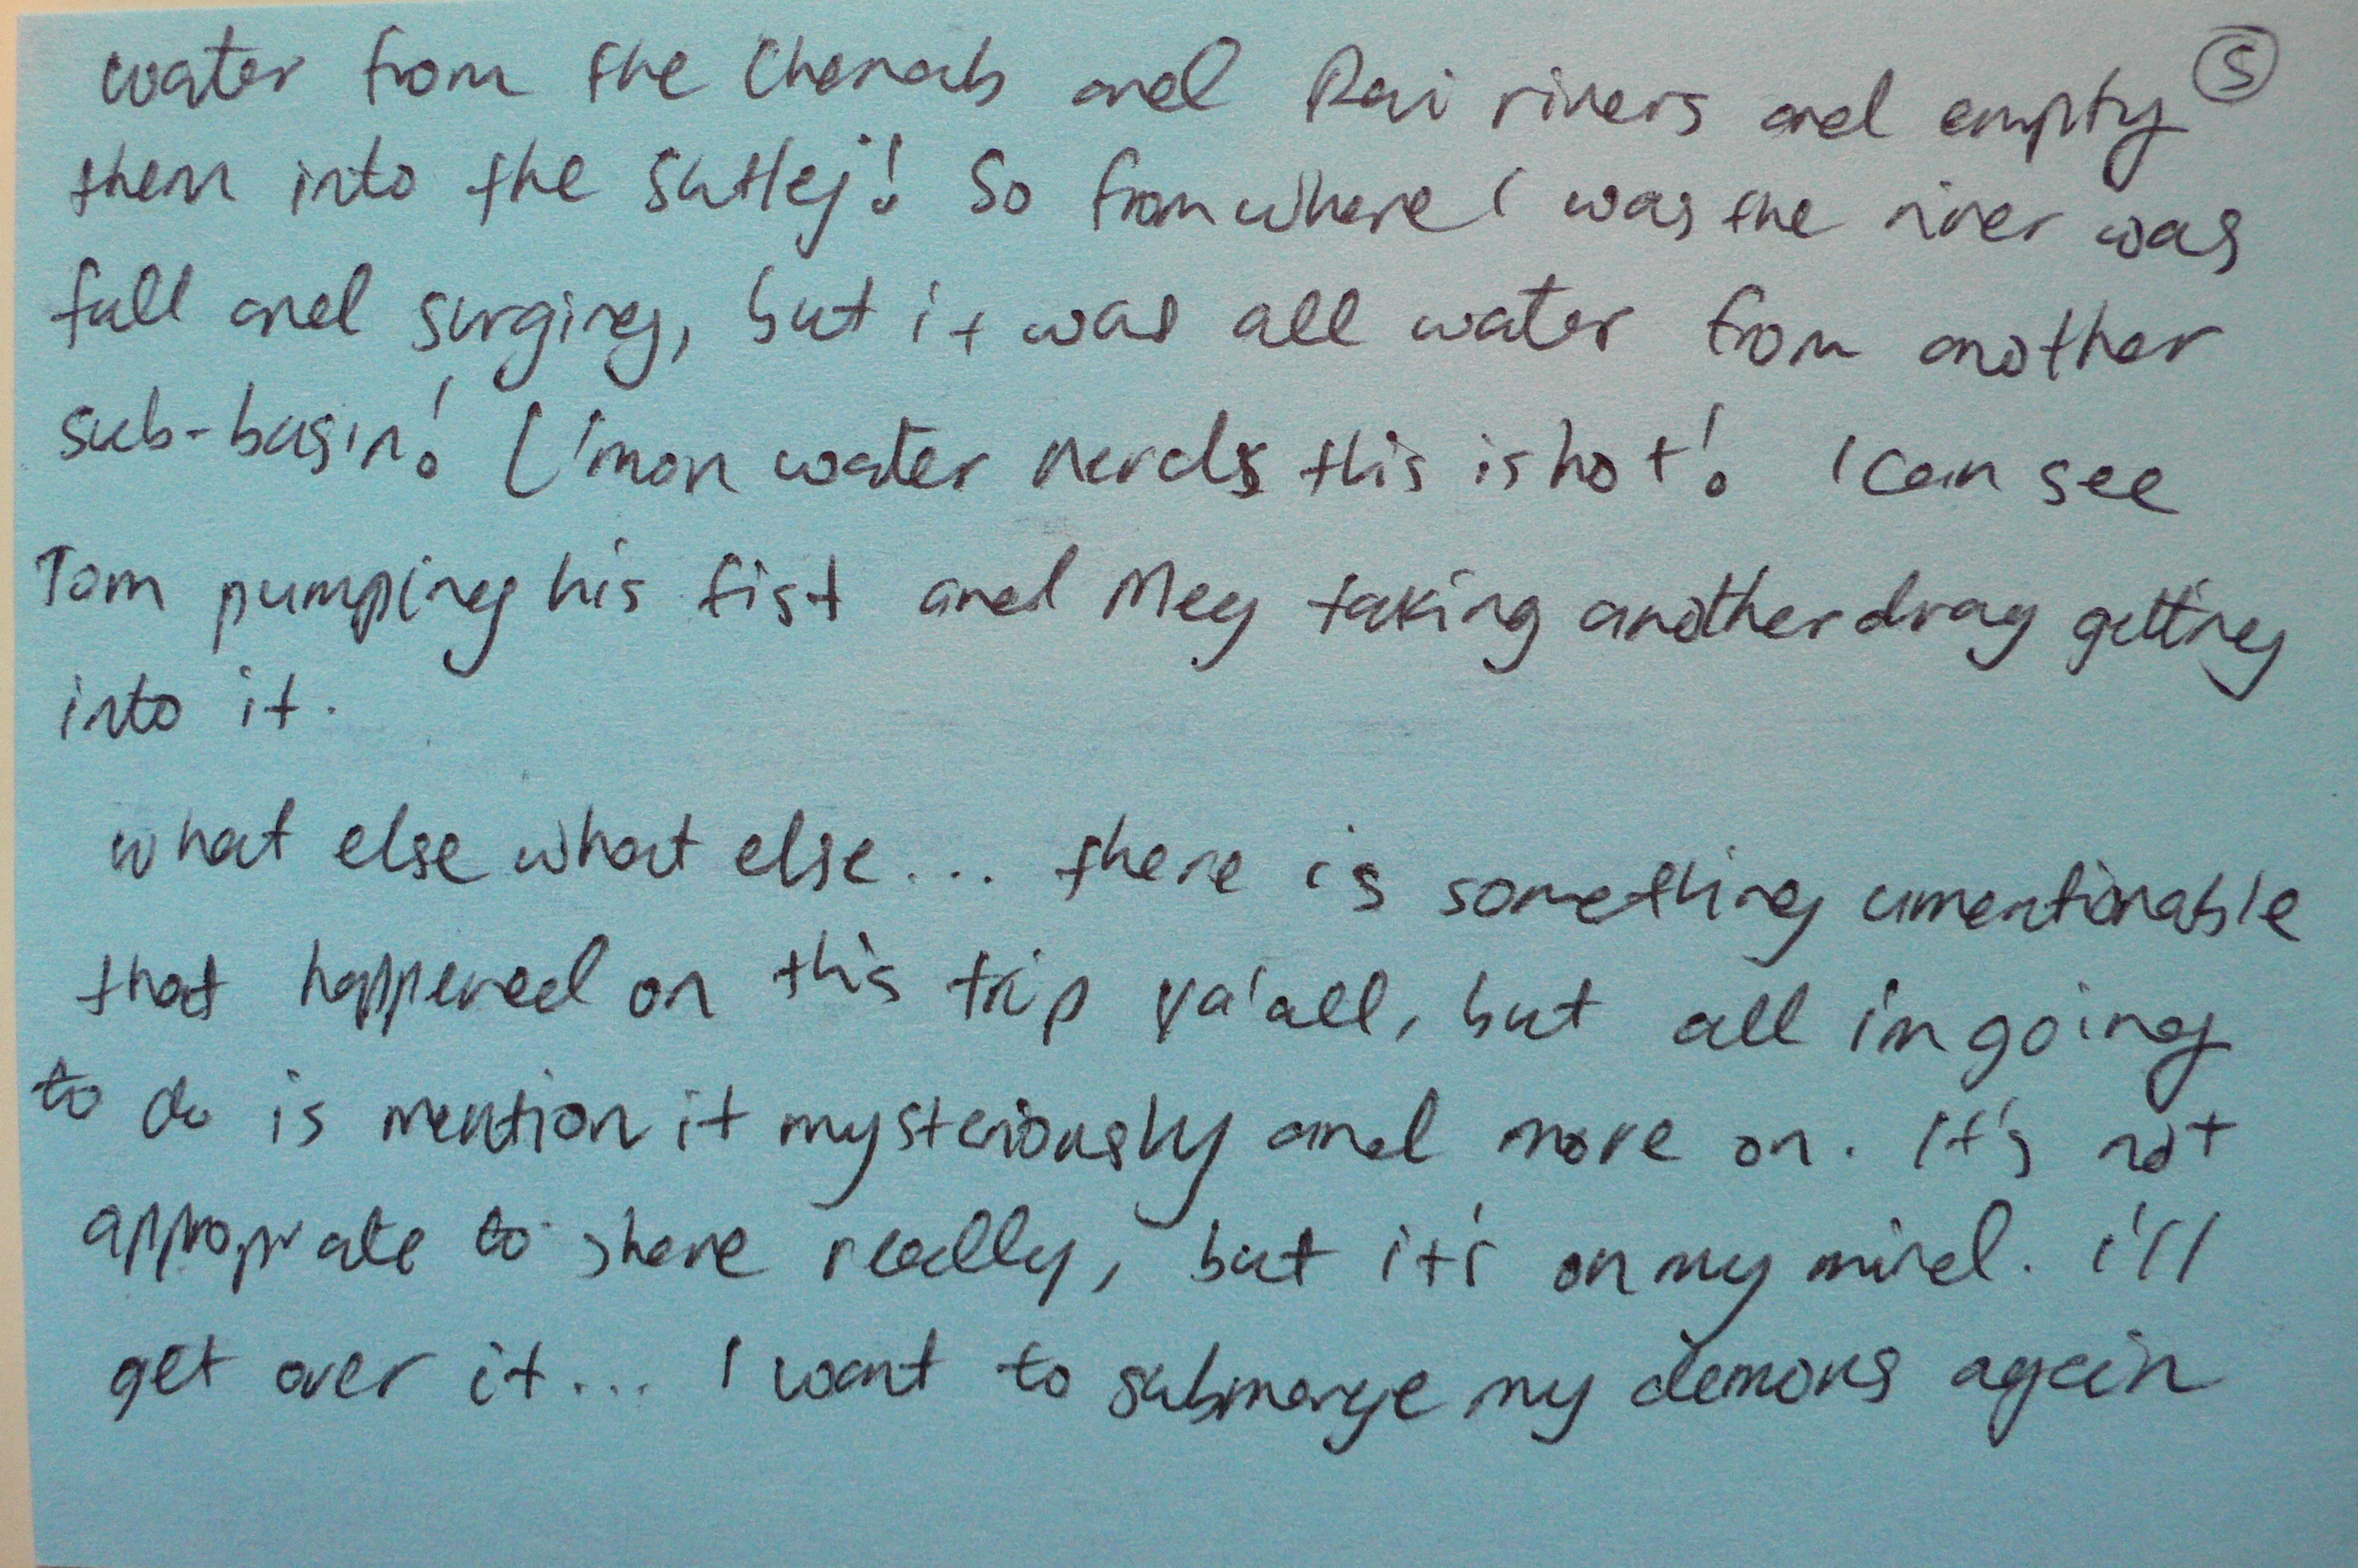 water from the Chenab and Ravi rivers and empty ⑤
them into the Sutlej! So from where I was the river was
full and surging, but it was all water from another
sub-basin! C'mon water nerds this is hot! I can see
Tom pumping his fist and Meg taking another drag getting
into it.
what else what else... there is something unmentionable
that happened on this trip ya'all, but all i'm going
to do is mention it mysteriously and move on. It's not
appropriate to share really, but it's on my mind. i'll
get over it... I want to submerge my demons again